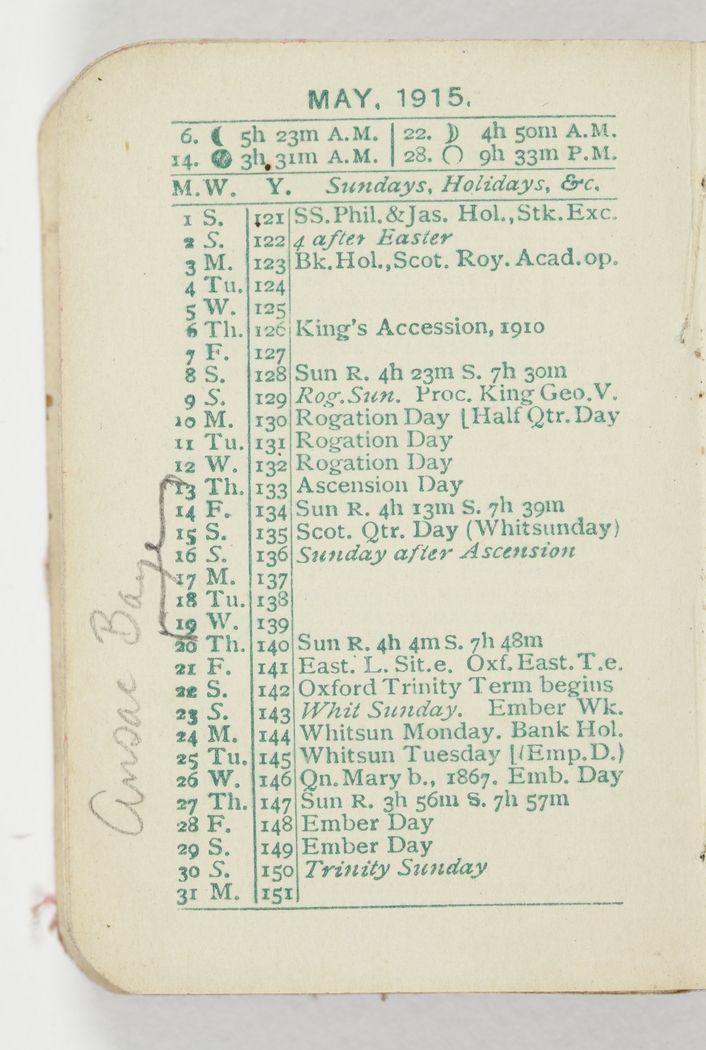 MAY, 1915.
6. ☾ 5h 23m A.M. | 22. ☽ 4h 50m A.M.
14. ● 3h 31m A.M. | 28. ○ 9h 33m P.M.
M. W. Y. Sundays, Holidays, &c.
1 S. 121 SS. Phil. & Jas. Hol., Stk. Exc.
2 S. 122 4 after Easter
3 M. 123 Bk. Hol., Scot. Roy. Acad. op.
4 Tu. 124
5 W. 125
6 Th. 126 King's Accession, 1910
7 F. 127
8 S. 128 Sun R. 4h 23m S. 7h 30m
9 S. 129 Rog. Sun. Proc. King Geo. V.
10 M. 130 Rogation Day [Half Qtr. Day
11 Tu. 131 Rogation Day
12 W. 132 Rogation Day
13 Th. 133 Ascension Day
14 F. 134 Sun R. 4h 13m S. 7h 39m
15 S. 135 Scot. Qtr. Day (Whitsunday)
16 S. 136 Sunday after Ascension
17 M. 137
18 Tu. 138
19 W. 139
20 Th. 140 Sun R. 4h 4m S. 7h 48m
21 F. 141 East. L. Sit. e. Oxf. East. T. e.
22 S. 142 Oxford Trinity Term begins
23 S. 143 Whit Sunday. Ember Wk.
24 M. 144 Whitsun Monday. Bank Hol.
25 Tu. 145 Whitsun Tuesday [(Emp. D.)
26 W. 146 Qn. Mary b., 1867. Emb. Day
27 Th. 147 Sun R. 3h 56m S. 7h 57m
28 F. 148 Ember Day
29 S. 149 Ember Day
30 S. 150 Trinity Sunday
31 M. 151
Ansac Baye